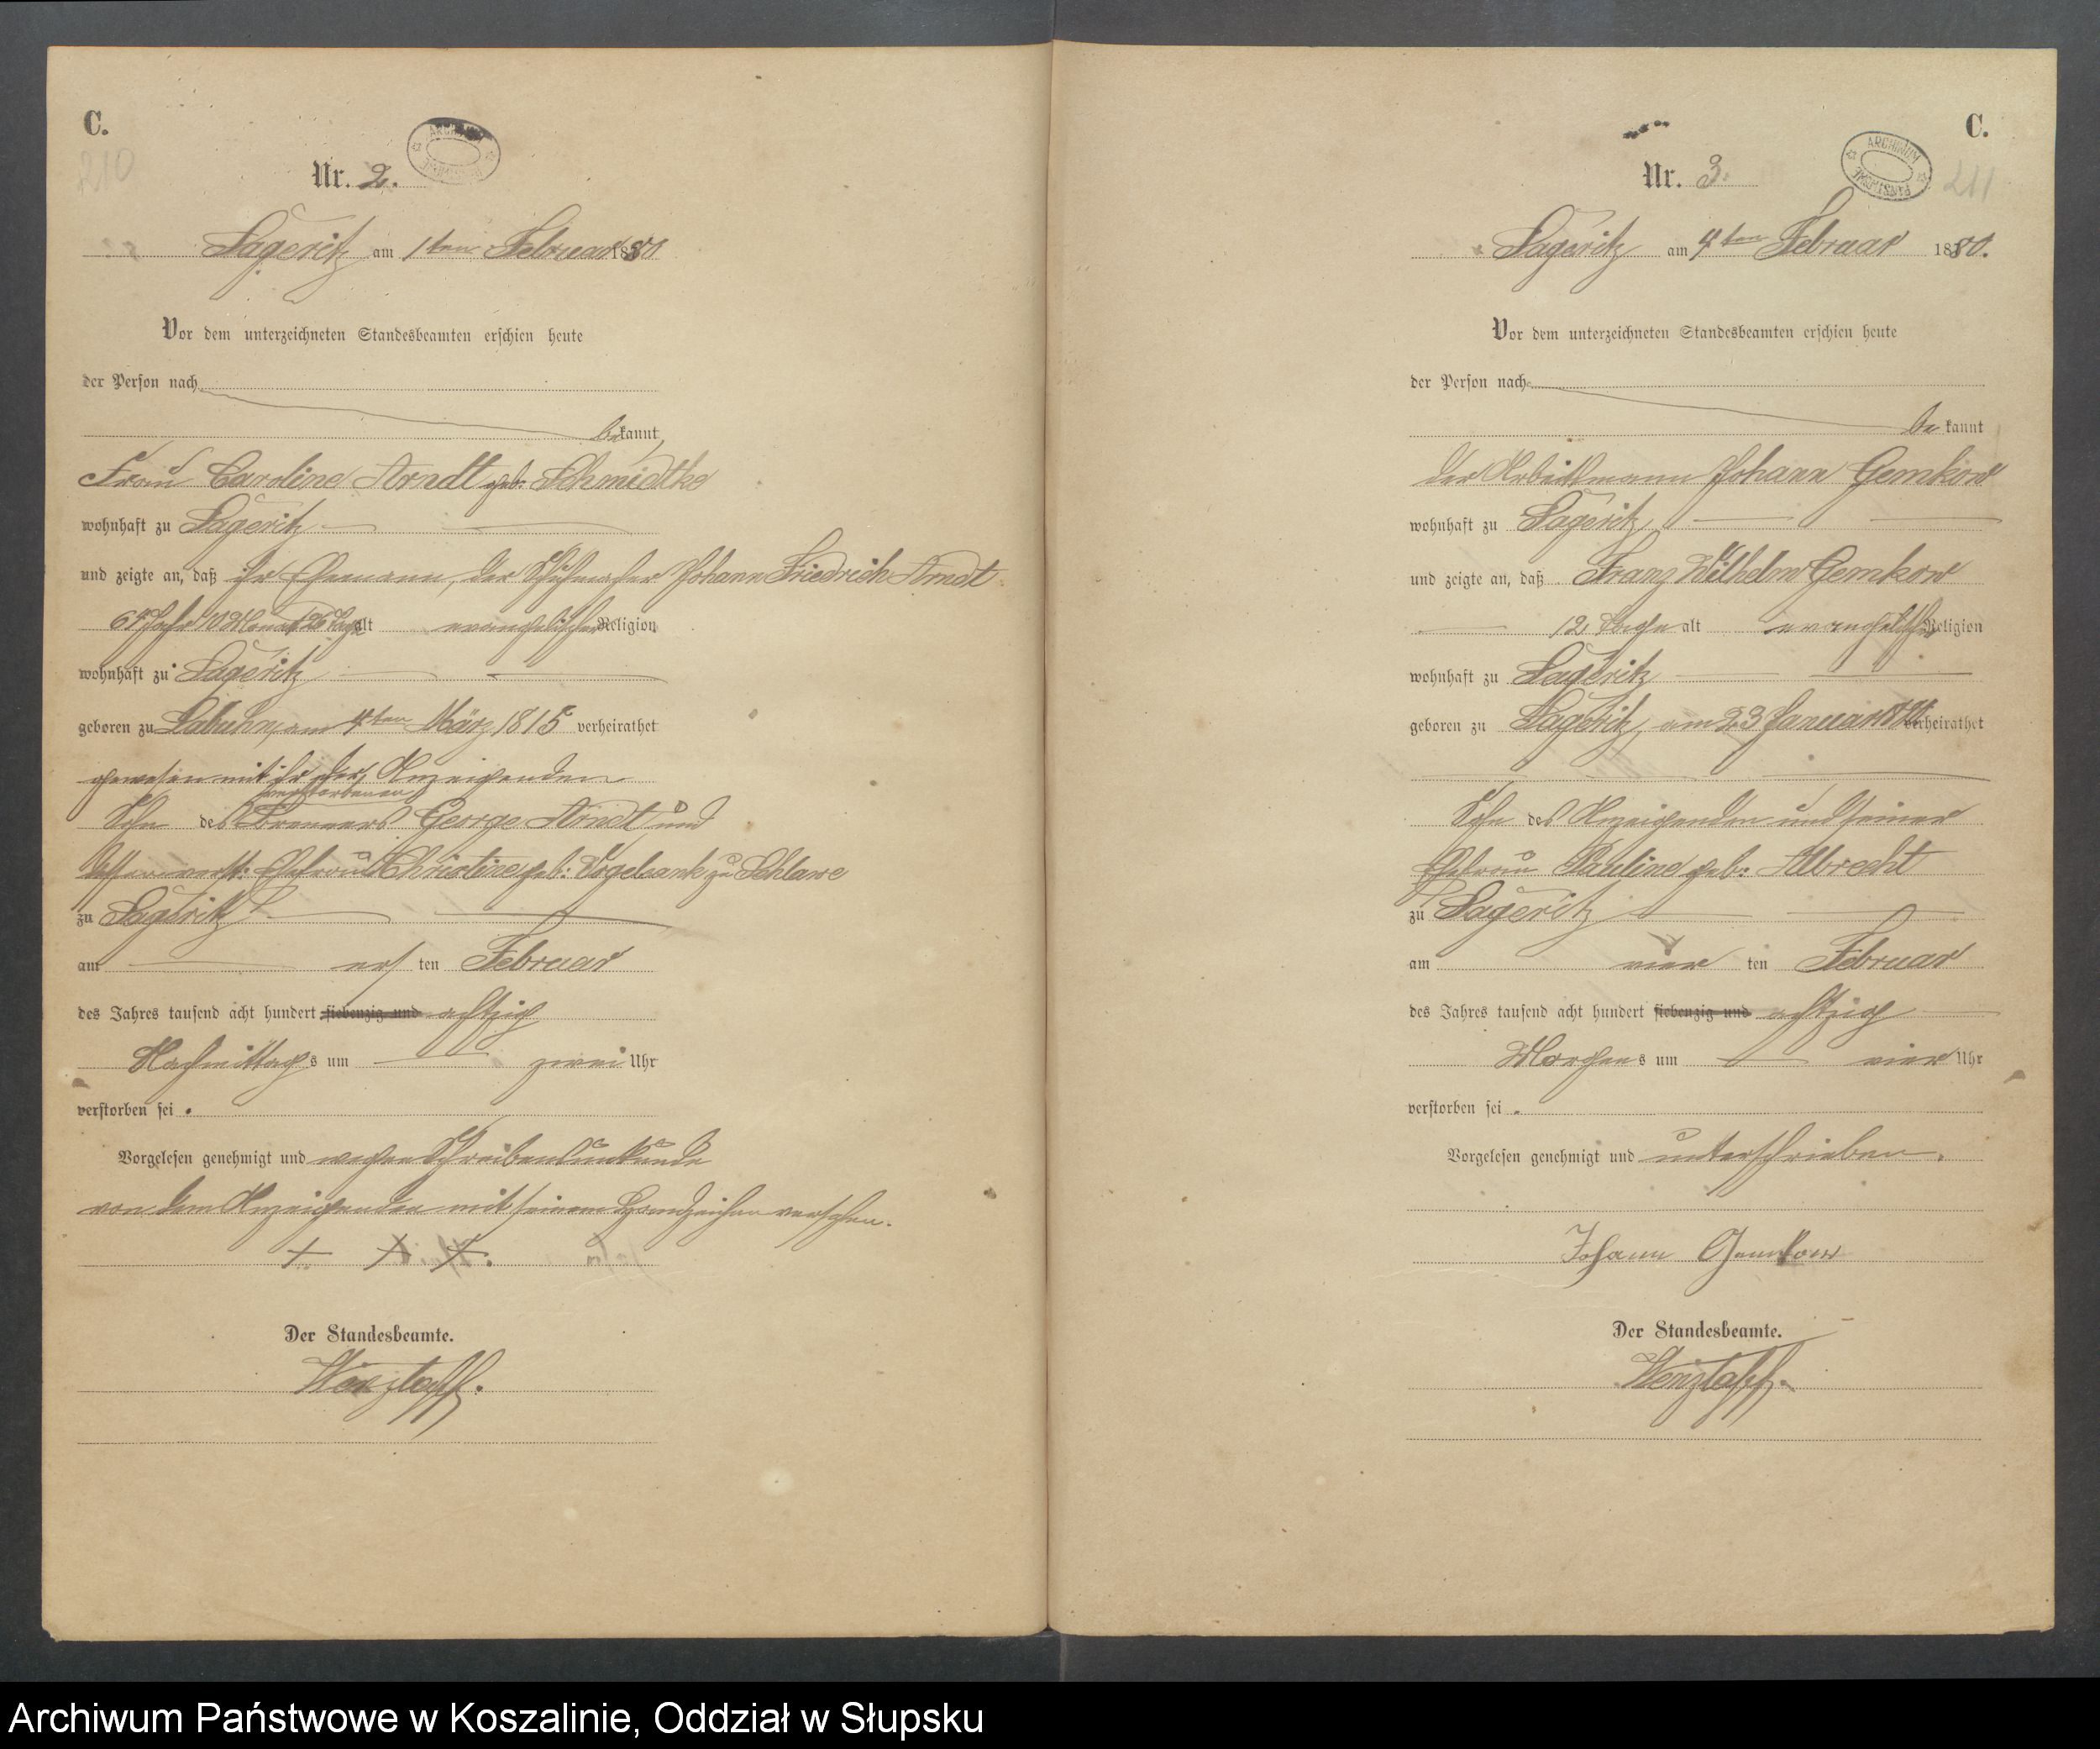 C.
210
Nr. 2.
ARCHIWUM
Lageritz am 1ten Februar 1880
Vor dem unterzeichneten Standesbeamten erschien heute
der Person nach
bekannt,
Frau Caroline Arndt geb: Schmidtke
wohnhaft zu Lageritz
und zeigte an, daß ihr Ehemann, der Schuhmacher Johann Friedrich Arndt
64 Jahr 10 Monat 26 Tage alt evangelischer Religion
wohnhaft zu Lageritz
geboren zu Labuhn, am 4ten März 1815 verheirathet
gewesen mit ihr der Anzeigenden
verstorbenen
Sohn des Brenners George Arndt und
verst: Ehefrau Christine geb: Vogelsank zu Schlawe
zu Lageritz
am ersten Februar
des Jahres tausend acht hundert siebenzig und achtzig
Nachmittags um zwei Uhr
verstorben sei.
Vorgelesen genehmigt und wegen Schreibensunkunde
von dem Anzeigenden mit seinem Handzeichen versehen.
+ + +.
Der Standesbeamte.
C.
211
Nr. 3.
ARCHIWUM PAŃSTWOWE
Lageritz am 4ten Februar 1880.
Vor dem unterzeichneten Standesbeamten erschien heute
der Person nach
bekannt
der Arbeitsmann Johann Gemkow
wohnhaft zu Lageritz,
und zeigte an, daß Franz Wilhelm Gemkow
12 Tage alt evangelischer Religion
wohnhaft zu Lageritz
geboren zu Lageritz, am 23 Januar verheirathet
Sohn des Anzeigenden und seiner
Ehefrau Pauline geb: Albrecht
zu Lageritz
am vierten Februar
des Jahres tausend acht hundert siebenzig und achtzig
Morgens um vier Uhr
verstorben sei.
Vorgelesen genehmigt und unterschrieben.
Johann Gemkow
Der Standesbeamte.
Archiwum Państwowe w Koszalinie, Oddział w Słupsku